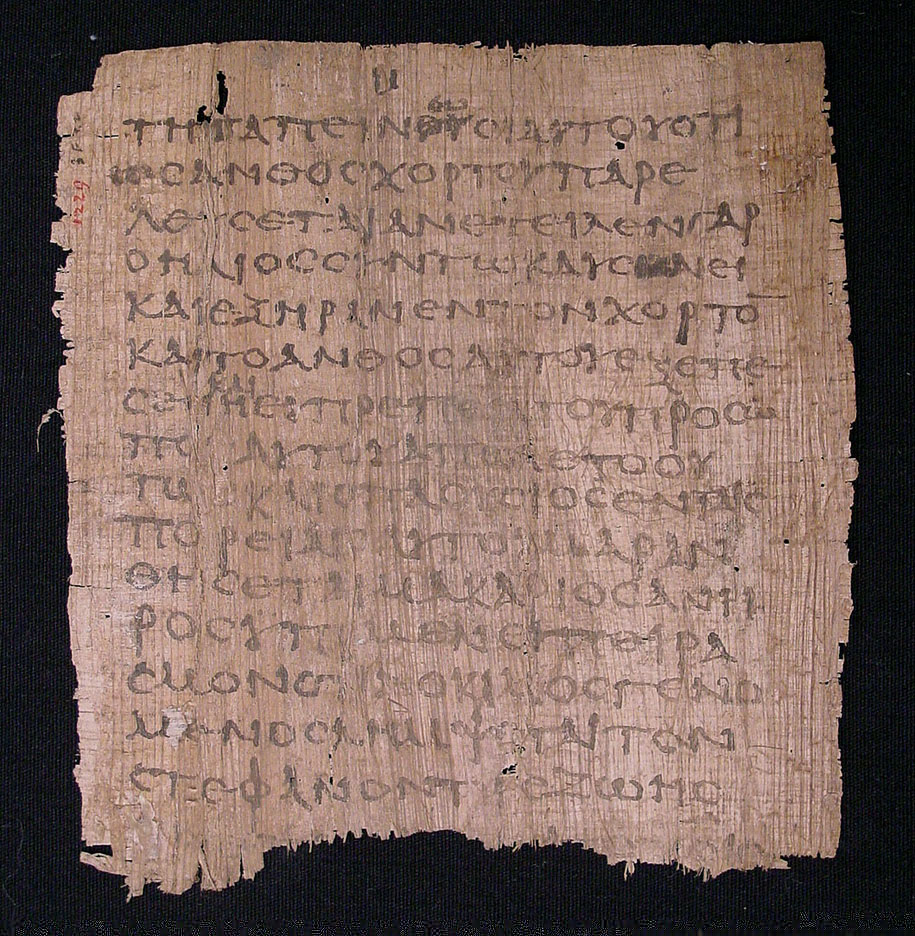 ΤΗ ΤΑΠΕΙΝΩϹΙ ΑΥΤΟΥ ΟΤΙ
ΩϹ ΑΝΘΟϹ ΧΟΡΤΟΥ ΠΑΡΕ
ΛΕΥϹΕΤΑΙ ΑΝΕΤΕΙΛΕΝ ΓΑΡ
Ο ΗΛΙΟϹ ϹΥΝ ΤΩ ΚΑΥϹΩΝΕΙ
ΚΑΙ ΕΞΗΡΑΝΕΝ ΤΟΝ ΧΟΡΤΟ̅
ΚΑΙ ΤΟ ΑΝΘΟϹ ΑΥΤΟΥ ΕΞΕΠΕ
ΤΟΥ ΠΡΟϹΩ
ΑΥΤΟΥ ΑΠΩΛΕΤΟ ΟΥ
ΚΑΙ Ο ΠΛΟΥϹΙΟϹ ΕΝ ΤΑΙϹ
ΠΟΡΕΙΑΙϹ ΑΥΤΟΥ ΜΑΡΑΝ
ΘΗϹΕΤΑΙ ΜΑΚΑΡΙΟϹ ΑΝΗ
Ρ ΟϹ ΥΠΟΜΕΝΕΙ ΠΕΙΡΑ
ϹΜΟΝ ΟΤΙ ΔΟΚΙΜΟϹ ΓΕΝΟ
ΜΕΝΟϹ ΛΗΜΨΕΤΑΙ ΤΟΝ
ϹΤΕΦΑΝΟΝ ΤΗϹ ΖΩΗϹ Ο
1229